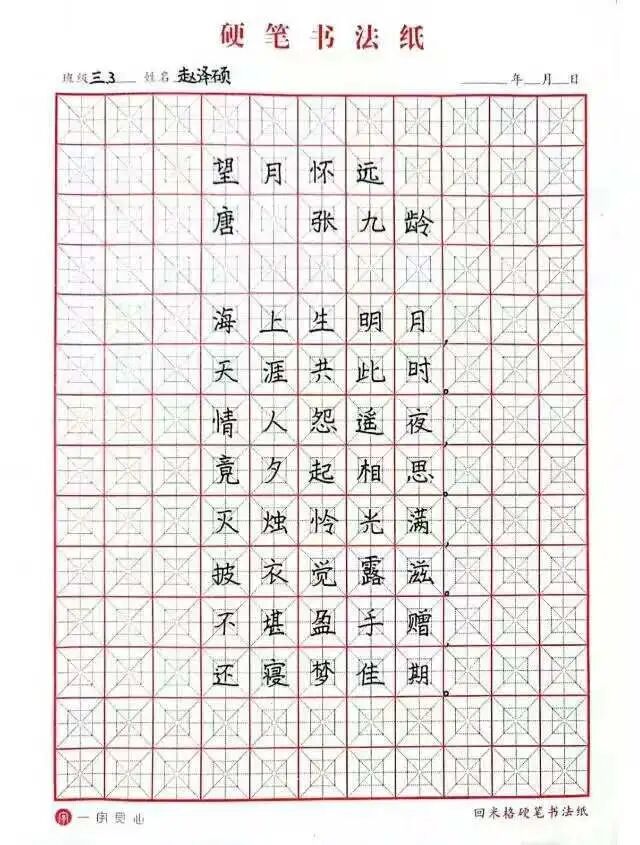 硬笔书法纸
班级 三3 姓名 赵泽硕 年 月 日
望月怀远
唐 张九龄
海上生明月，
天涯共此时。
情人怨遥夜，
竟夕起相思。
灭烛怜光满，
披衣觉露滋。
不堪盈手赠，
还寝梦佳期。
一字见心 回米格硬笔书法纸